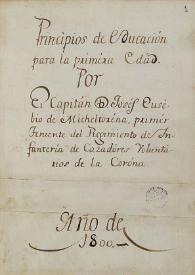 1
Principios de Educación
para la primera Edad.
Por
El Capitán D. Josef Euse-
bio de Micheltorena, primer
Teniente del Regimiento de In-
fantería de Cazadores Volunta-
rios de la Corona.
Año de
1800.